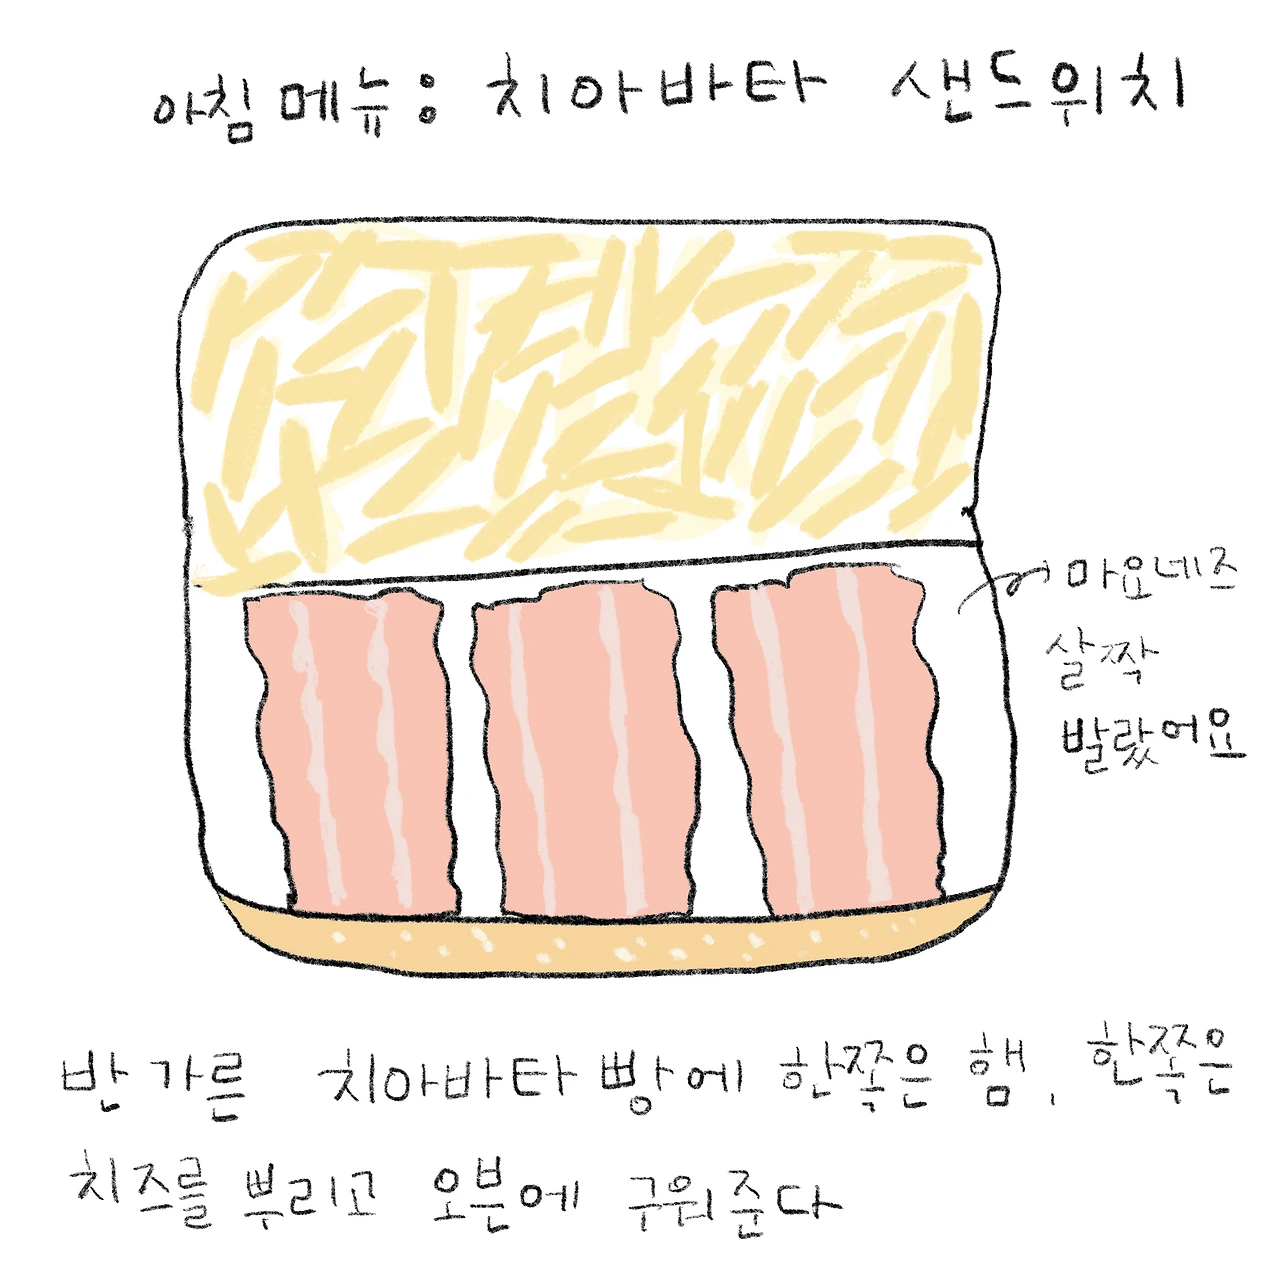 아침메뉴: 치아바타 샌드위치
마요네즈
살짝
발랐어요
반 가른 치아바타 빵에 한쪽은 햄, 한쪽은
치즈를 뿌리고 오븐에 구워준다